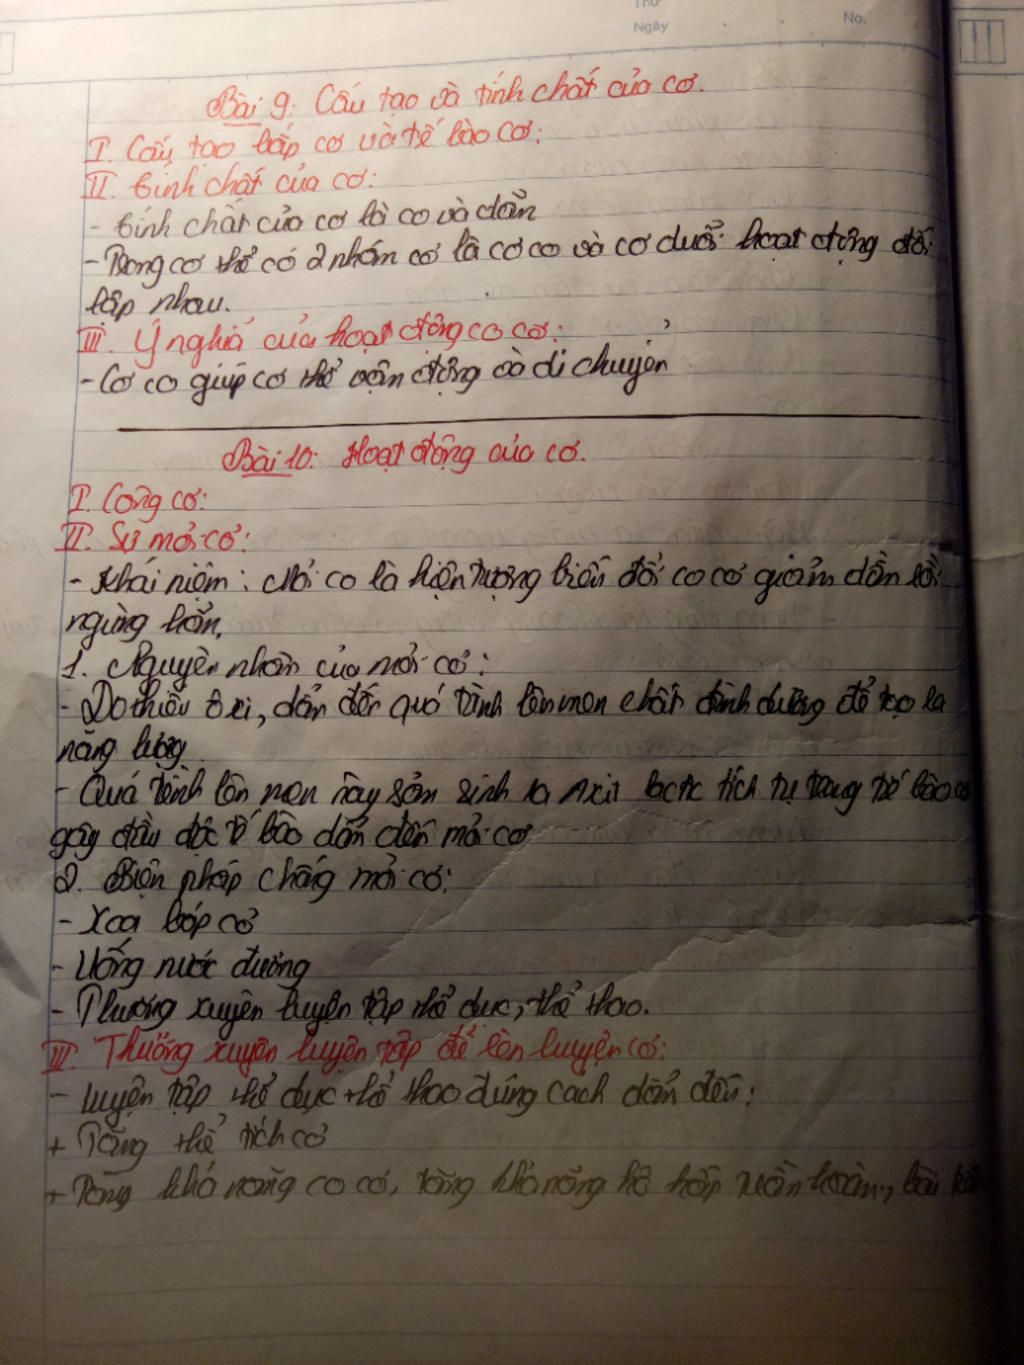 Thứ
Ngày No.
Bài 9: Cấu tạo và tính chất của cơ.
I. Cấu tạo bắp cơ và tế bào cơ:
II. Tính chất của cơ:
- Tính chất của cơ là co và dãn
- Trong cơ thể có 2 nhóm cơ là cơ co và cơ duỗi hoạt động đối
lập nhau.
III. Ý nghĩa của hoạt động co cơ:
- Cơ co giúp cơ thể vận động và di chuyển
Bài 10: Hoạt động của cơ.
I. Công cơ:
II. Sự mỏi cơ:
- Khái niệm: Mỏi cơ là hiện tượng biên độ co cơ giảm dần rồi
ngừng hẳn.
1. Nguyên nhân của mỏi cơ:
- Do thiếu ôxi, dẫn đến quá trình lên men chất dinh dưỡng để tạo ra
năng lượng
- Quá trình lên men này sản sinh ra axit lactic tích tụ trong tế bào cơ
gây đầu độc tế bào dẫn đến mỏi cơ
2. Biện pháp chống mỏi cơ:
- Xoa bóp cơ
- Uống nước đường
- Thường xuyên luyện tập thể dục, thể thao.
III. Thường xuyên luyện tập để rèn luyện cơ:
- luyện tập thể dục thể thao đúng cách dẫn đến:
+ Tăng thể tích cơ
+ Tăng khả năng co cơ, tăng khả năng hô hấp tuần hoàn,